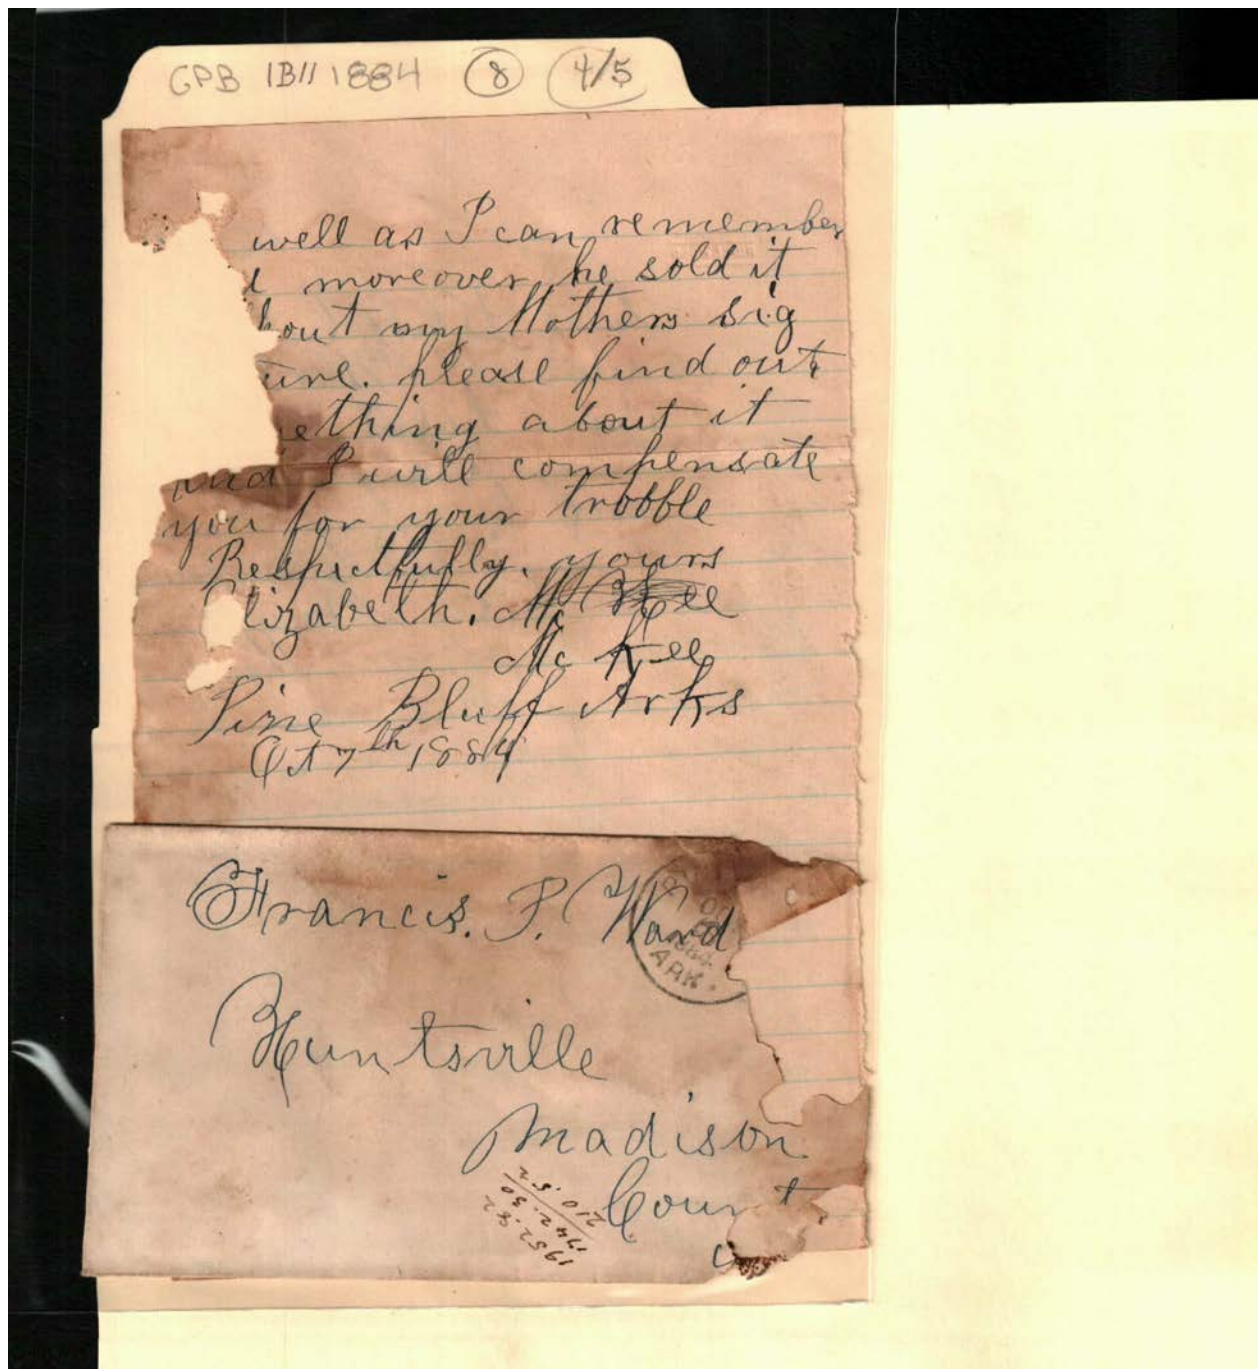 GPB 1B11 1884 8 4/5
well as I can remember
moreover he sold it
bout my Mothers sig
ture. please find out
ething about it
and I will compensate
you for your trobble
Respectfully. yours
lizabeth. Mc Kee
Mc Kee
Pine Bluff Arks
Oct 7th 1884
Francis. P. Ward
Huntsville
Madison
Count
1952.82
1742.30
210.52
1884
ARK.